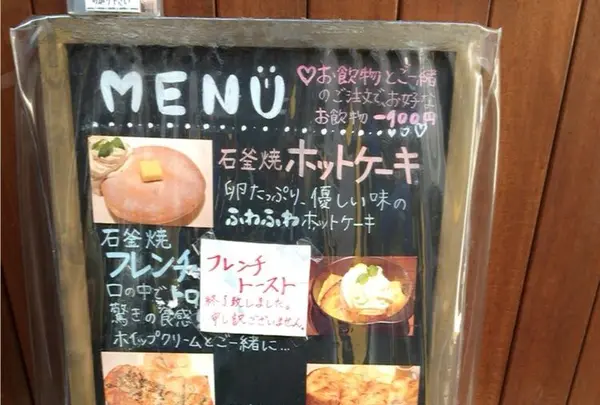 MENU
♡お飲物とご一緒
のご注文で、お好な
お飲物 -100円
石釜焼ホットケーキ
卵たっぷり、優しい味の
ふわふわホットケーキ
石釜焼
フレンチ
口の中で
驚きの食感
ホイップクリームとご一緒に…
フレンチ
トースト
終了致しました。
申し訳ございません。